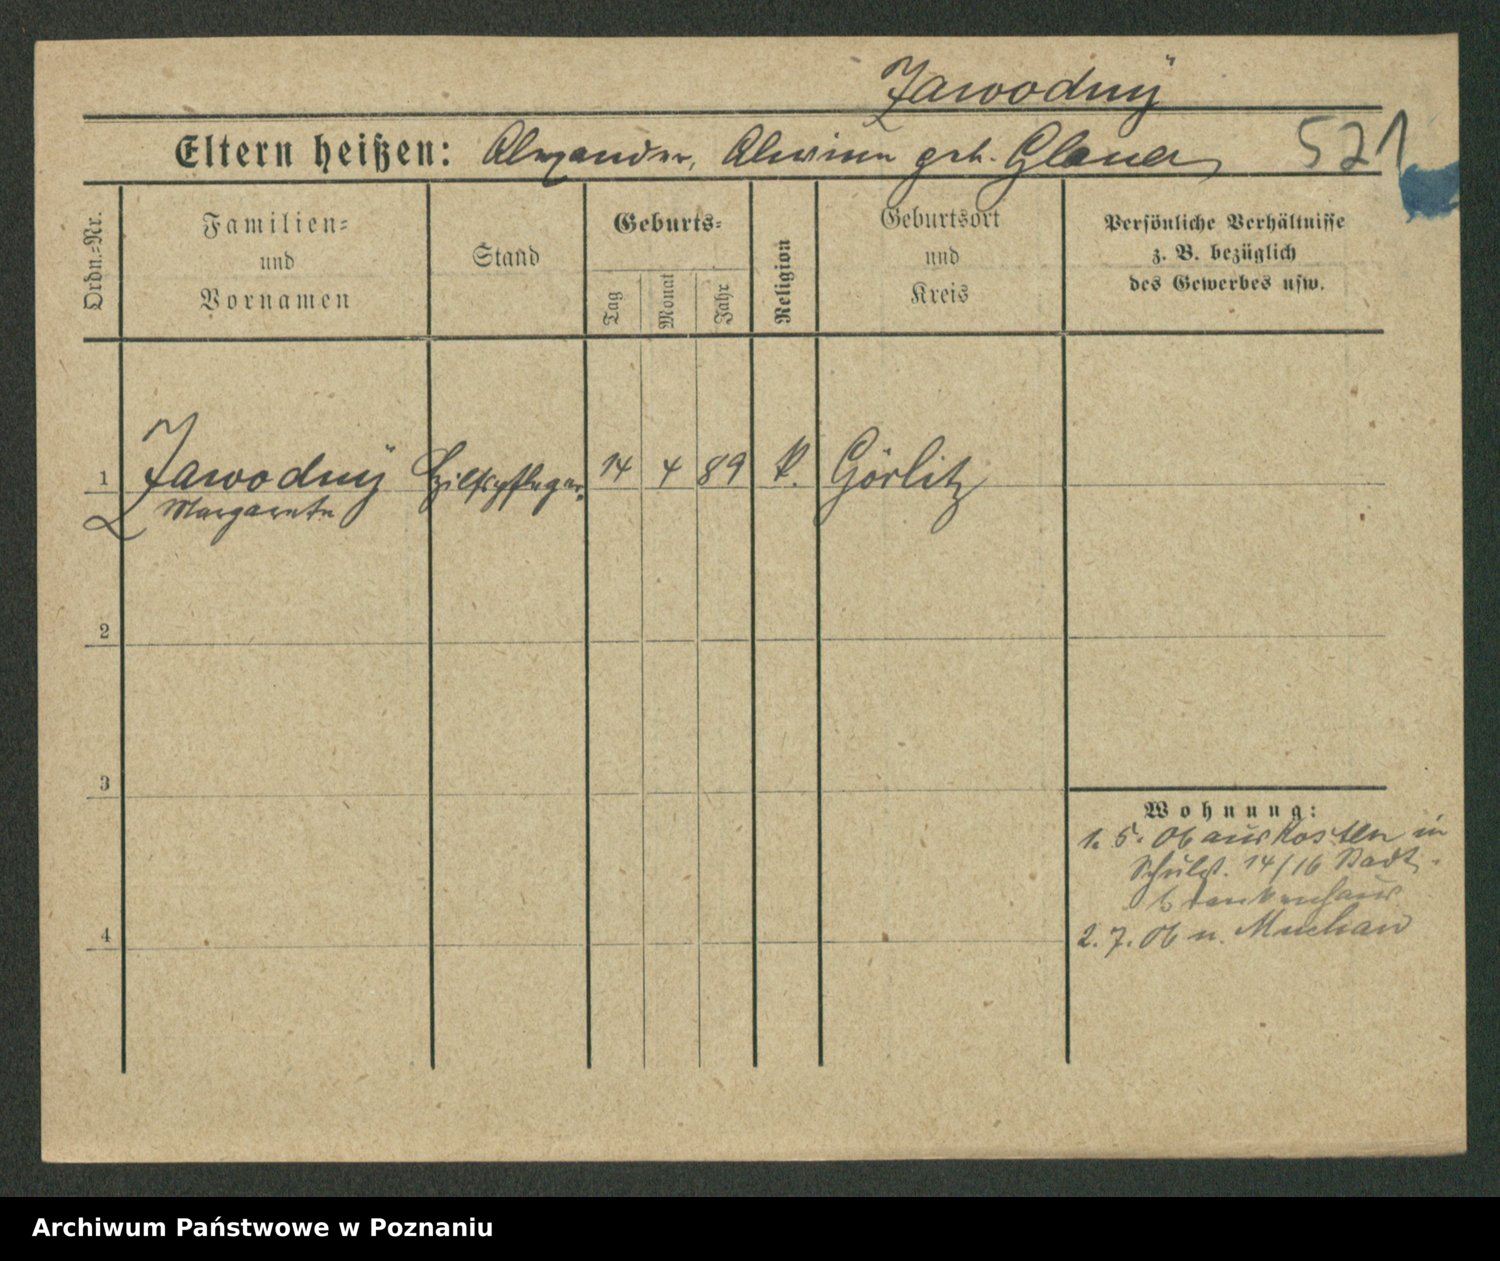 Zawodny
Eltern heißen: Alexander, Alwine geb. Glauer
521
Ordn.-Nr.
Familien-
und
Vornamen
Stand
Geburts-
Tag
Monat
Jahr
Religion
Geburtsort
und
Kreis
Persönliche Verhältnisse
z. B. bezüglich
des Gewerbes usw.
1 Zawodny Hilfspfleger. 14 4 89 k. Görlitz
Margarete
2
3
4
Wohnung:
1. 5. 06 aus Kosten in
Schulst. 14/16 Stadt.
Krankenhaus
2. 7. 06 n. Muchau
Archiwum Państwowe w Poznaniu